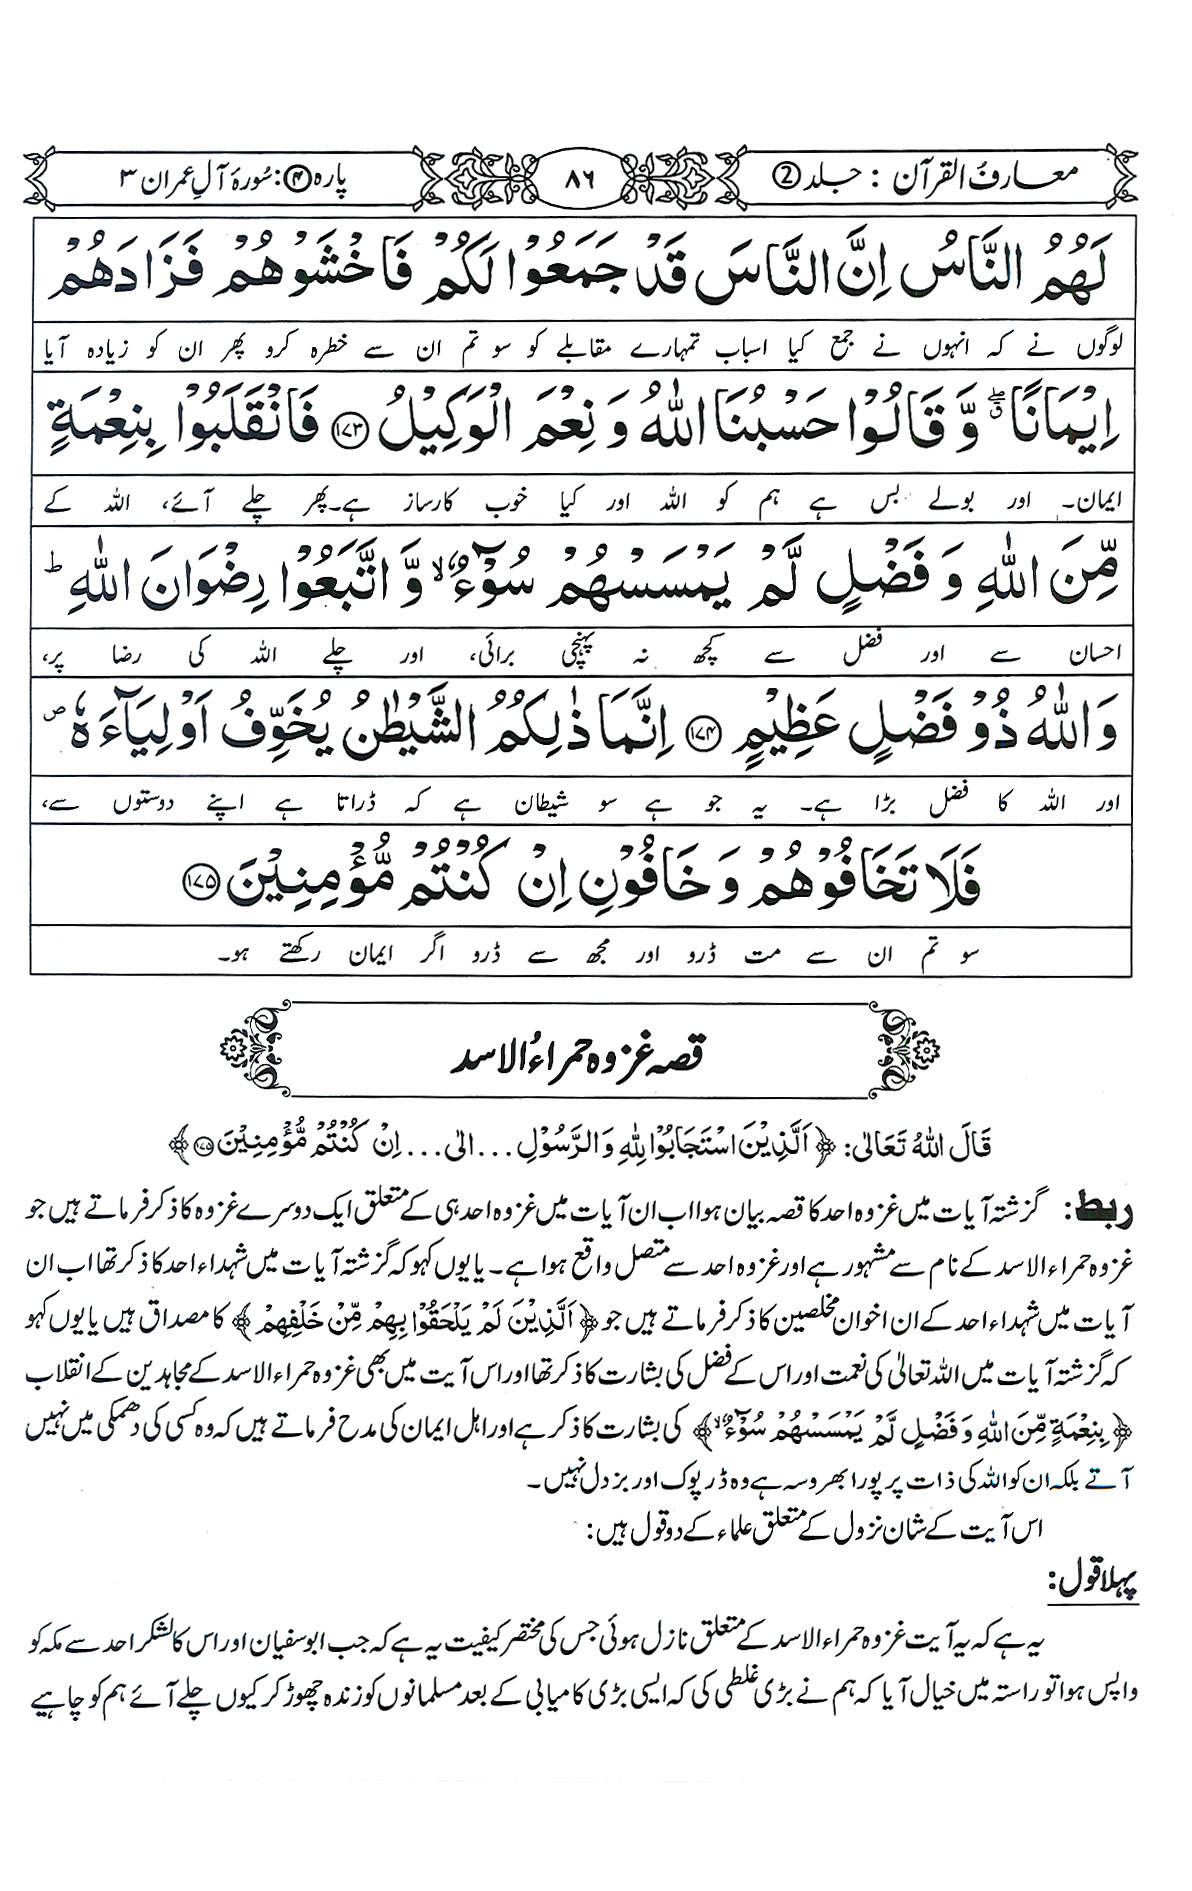 معارف القرآن : جلد 2
۸۶
پارہ ۴: سُورۂ آلِ عمران ۳
لَهُمُ النَّاسُ اِنَّ النَّاسَ قَدْ جَمَعُوْا لَكُمْ فَاخْشَوْهُمْ فَزَادَهُمْ
لوگوں نے کہ انہوں نے جمع کیا اسباب تمہارے مقابلے کو سو تم ان سے خطرہ کرو پھر ان کو زیادہ آیا
اِيْمَانًا ۖۗ وَّ قَالُوْا حَسْبُنَا اللّٰهُ وَ نِعْمَ الْوَكِيْلُ ۝۱۷۳ فَانْقَلَبُوْا بِنِعْمَةٍ
ایمان۔ اور بولے بس ہے ہم کو اللہ اور کیا خوب کارساز ہے۔پھر چلے آئے، اللہ کے
مِّنَ اللّٰهِ وَ فَضْلٍ لَّمْ يَمْسَسْهُمْ سُوْٓءٌ ۙ وَّ اتَّبَعُوْا رِضْوَانَ اللّٰهِ ؕ
احسان سے اور فضل سے کچھ نہ پہنچی برائی، اور چلے اللہ کی رضا پر،
وَ اللّٰهُ ذُوْ فَضْلٍ عَظِيْمٍ ۝۱۷۴ اِنَّمَا ذٰلِكُمُ الشَّيْطٰنُ يُخَوِّفُ اَوْلِيَآءَهٗ ۪
اور اللہ کا فضل بڑا ہے۔ یہ جو ہے سو شیطان ہے کہ ڈراتا ہے اپنے دوستوں سے،
فَلَا تَخَافُوْهُمْ وَ خَافُوْنِ اِنْ كُنْتُمْ مُّؤْمِنِيْنَ ۝۱۷۵
سو تم ان سے مت ڈرو اور مجھ سے ڈرو اگر ایمان رکھتے ہو۔
قصہ غزوہ حمراءُ الاسد
قَالَ اللّٰهُ تَعَالٰى: ﴿اَلَّذِيْنَ اسْتَجَابُوْا لِلّٰهِ وَالرَّسُوْلِ...الى...اِنْ كُنْتُمْ مُّؤْمِنِيْنَ ۝۱۷۵﴾
ربط: گزشتہ آیات میں غزوہ احد کا قصہ بیان ہوا اب ان آیات میں غزوہ احد ہی کے متعلق ایک دوسرے غزوہ کا ذکر فرماتے ہیں جو
غزوہ حمراء الاسد کے نام سے مشہور ہے اور غزوہ احد سے متصل واقع ہوا ہے۔ یا یوں کہو کہ گزشتہ آیات میں شہداء احد کا ذکر تھا اب ان
آیات میں شہداء احد کے ان اخوان مخلصین کا ذکر فرماتے ہیں جو ﴿اَلَّذِيْنَ لَمْ يَلْحَقُوْا بِهِمْ مِّنْ خَلْفِهِمْ﴾ کا مصداق ہیں یا یوں کہو
کہ گزشتہ آیات میں اللہ تعالیٰ کی نعمت اور اس کے فضل کی بشارت کا ذکر تھا اور اس آیت میں بھی غزوہ حمراء الاسد کے مجاہدین کے انقلاب
﴿بِنِعْمَةٍ مِّنَ اللّٰهِ وَ فَضْلٍ لَّمْ يَمْسَسْهُمْ سُوْٓءٌ ۙ﴾ کی بشارت کا ذکر ہے اور اہل ایمان کی مدح فرماتے ہیں کہ وہ کسی کی دھمکی میں نہیں
آتے بلکہ ان کو اللہ کی ذات پر پورا بھروسہ ہے وہ ڈرپوک اور بزدل نہیں۔
اس آیت کے شان نزول کے متعلق علماء کے دو قول ہیں:
پہلا قول:
یہ ہے کہ یہ آیت غزوہ حمراء الاسد کے متعلق نازل ہوئی جس کی مختصر کیفیت یہ ہے کہ جب ابوسفیان اور اس کا لشکر احد سے مکہ کو
واپس ہوا تو راستہ میں خیال آیا کہ ہم نے بڑی غلطی کی کہ ایسی بڑی کامیابی کے بعد مسلمانوں کو زندہ چھوڑ کر کیوں چلے آئے ہم کو چاہیے